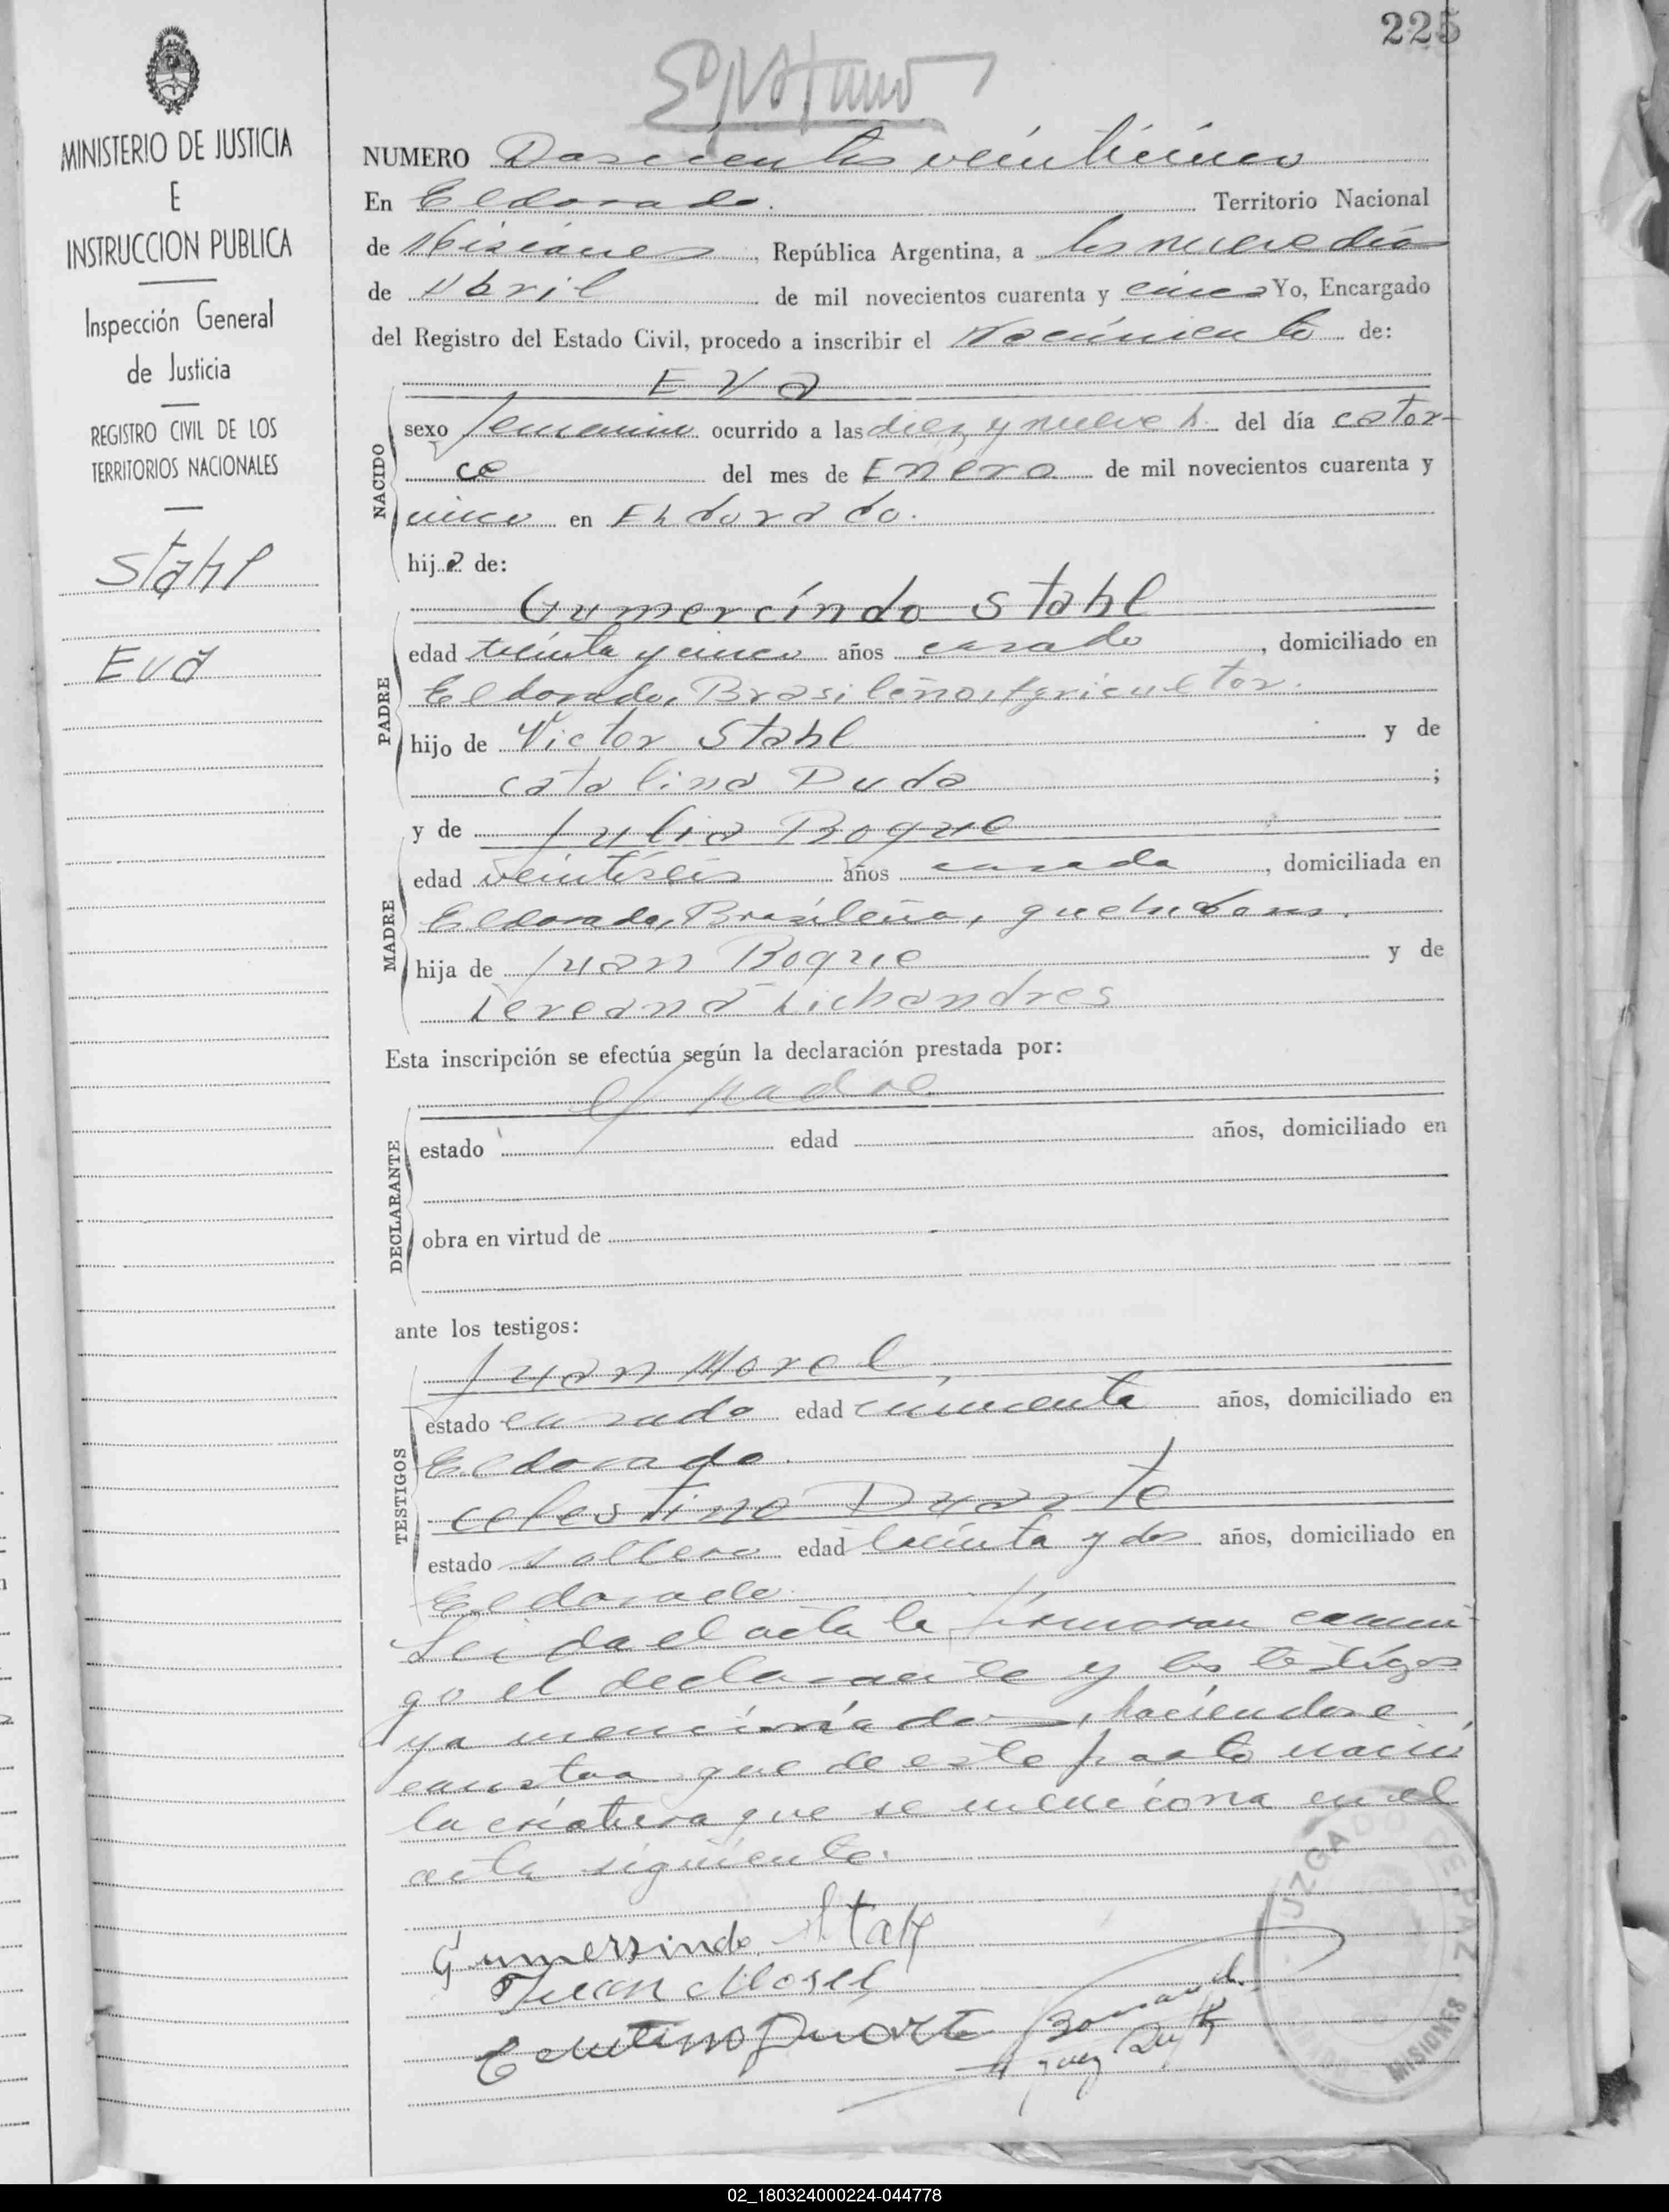 225
MINISTERIO DE JUSTICIA
E
INSTRUCCION PUBLICA
Inspección General
de Justicia
REGISTRO CIVIL DE LOS
TERRITORIOS NACIONALES
Stahl
Eva
NUMERO Doscientos veinticinco
En Eldorado. Territorio Nacional
de Misiones, República Argentina, a los nueve días
de Abril de mil novecientos cuarenta y cinco Yo, Encargado
del Registro del Estado Civil, procedo a inscribir el Nacimiento de:
EVa
NACIDO
sexo femenino ocurrido a las diez y nueve h. del día cator-
ce del mes de Enero de mil novecientos cuarenta y
cinco en Eldorado.
hija de:
PADRE
Gumercíndo Stahl
edad treinta y cinco años casado, domiciliado en
Eldorado, Brasileño, Agricultor.
hijo de Victor Stahl y de
catalina Duda;
MADRE
y de Julia Roque
edad veintiséis años casada, domiciliada en
Eldorado, Brasileña, quehaceres.
hija de Juan Roque y de
Lichandres
Esta inscripción se efectúa según la declaración prestada por:
DECLARANTE
el padre
estado edad años, domiciliado en
obra en virtud de
ante los testigos:
TESTIGOS
Juan Morel
estado casado edad cincuenta años, domiciliado en
Eldorado.
celestino Duarte
estado soltero edad treinta y dos años, domiciliado en
Eldorado.
Leída el acta la firmaran conmi
go el declarante y los testigos
ya mencionados, haciendose
constar que de este parto nació
la criatura que se menciona en el
acta siguiente.
Gumersindo Stahl
Juan Morel
Celestino Duarte
JUZGADO DE PAZ
MISIONES
02_180324000224-044778